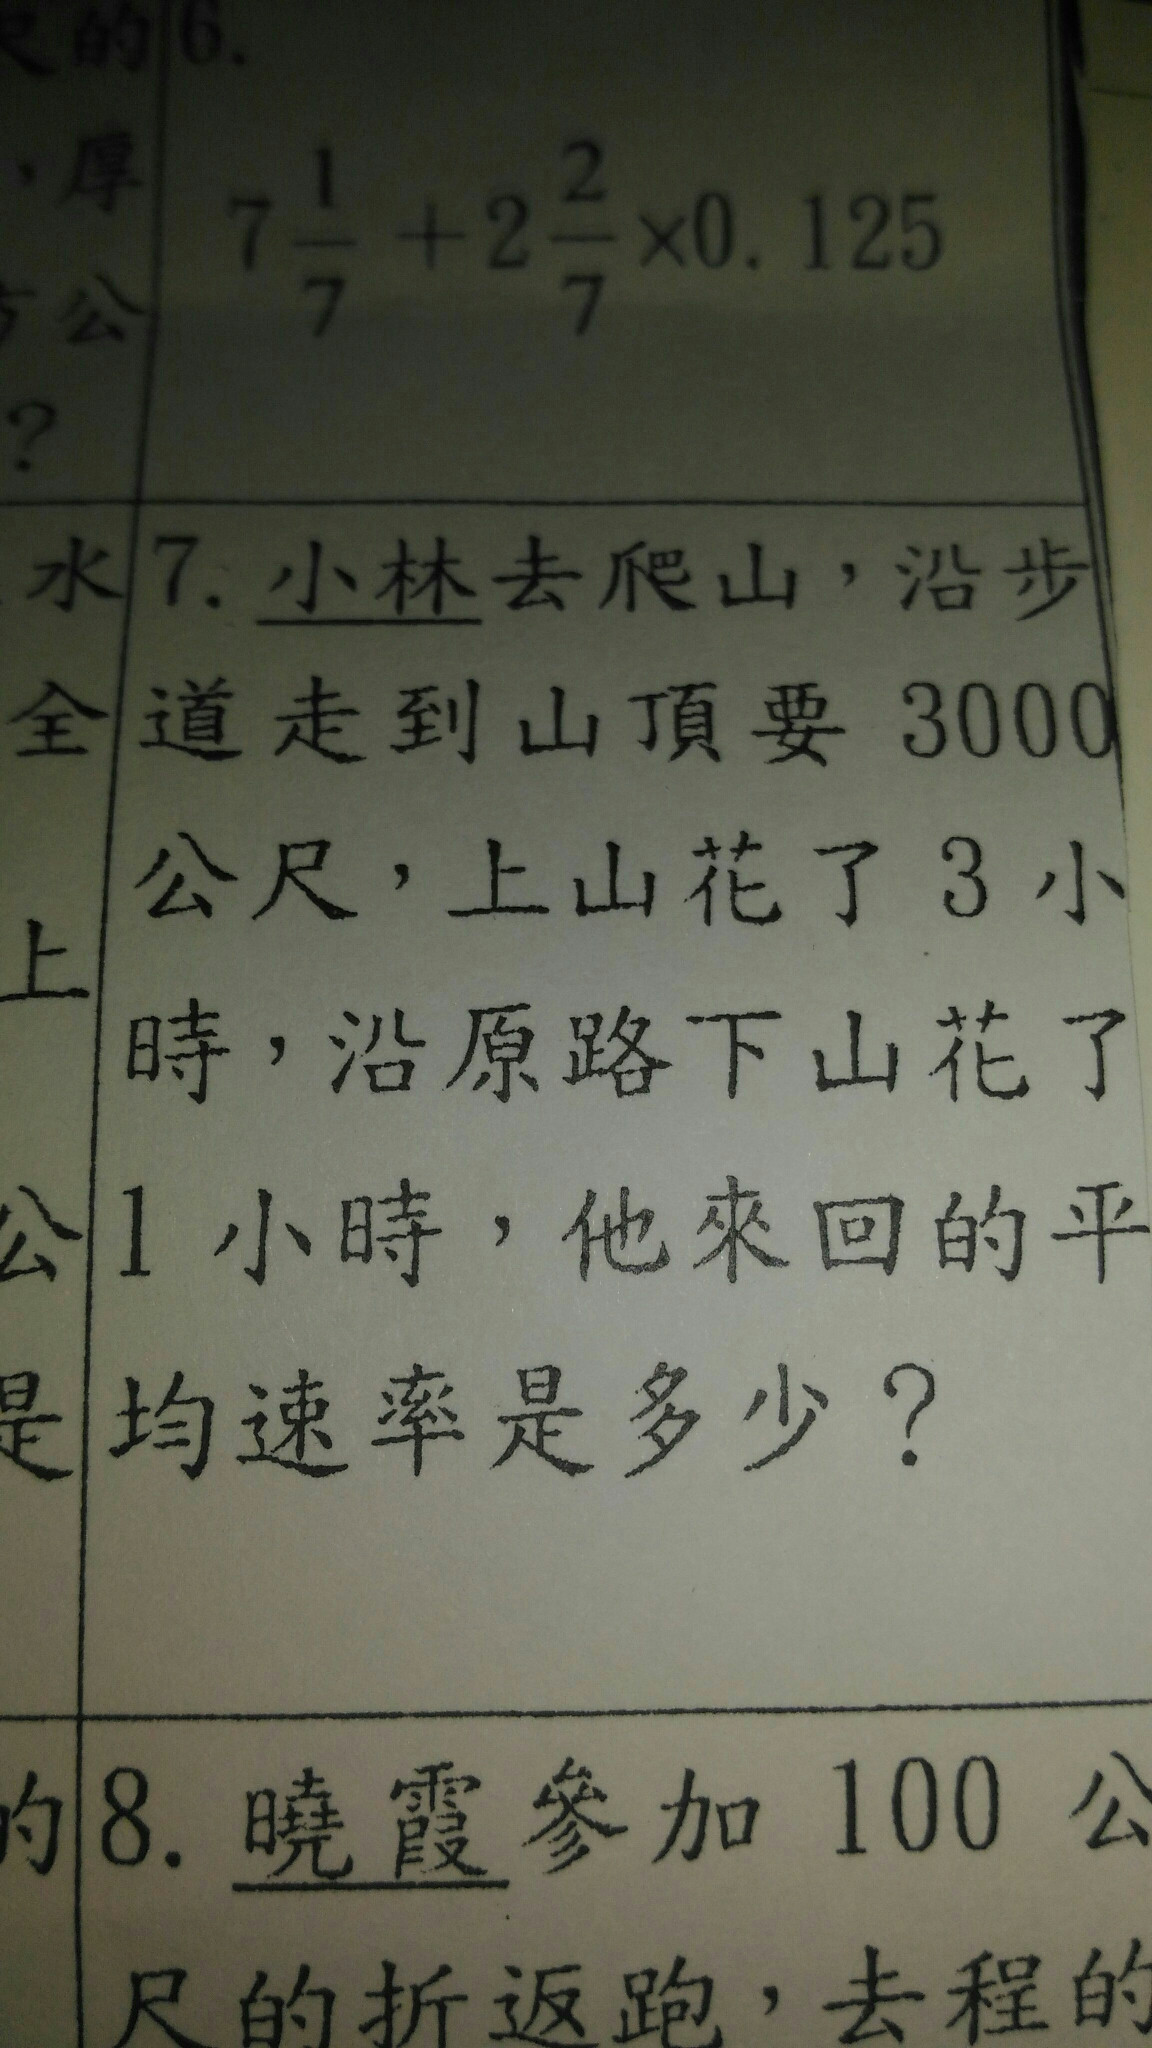 尺的
，厚
方公
？
水
全
上
公
是
的
6.
7 1/7 +2 2/7 ×0.125
7. 小林去爬山，沿步
道走到山頂要 3000
公尺，上山花了 3 小
時，沿原路下山花了
1 小時，他來回的平
均速率是多少？
8. 曉霞參加 100 公
尺的折返跑，去程的